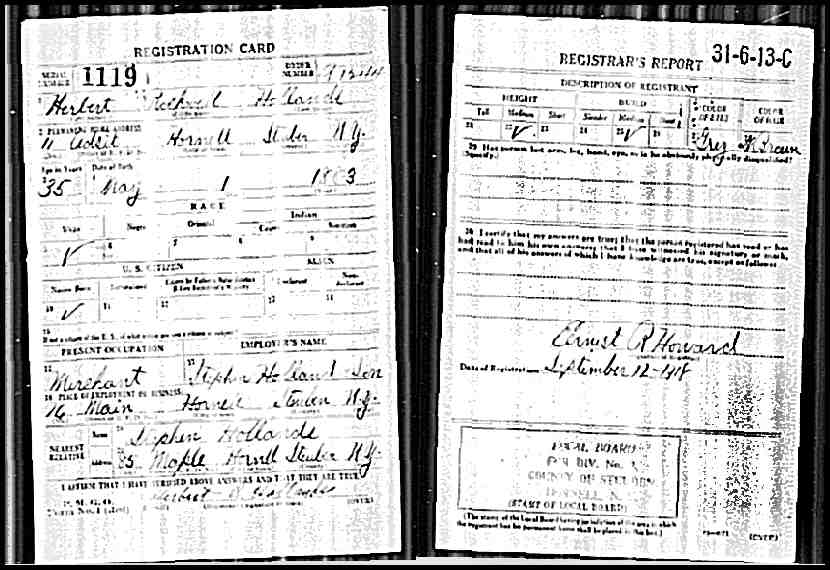 REGISTRATION CARD
SERIAL NUMBER 1119 ORDER NUMBER
1 Herbert Hollands
2 PERMANENT HOME ADDRESS
11 Hornell Steuben N.Y.
Age in Years Date of Birth
35 May 1 1883
RACE
White Negro Oriental Indian
U. S. CITIZEN ALIEN
Native Born Naturalized Declarant Non-declarant
10 11 12 13 14
15
If not a citizen of the U. S., of what nation are you a citizen or subject?
PRESENT OCCUPATION EMPLOYER'S NAME
Merchant Stephen Holland Son
18 PLACE OF EMPLOYMENT OR BUSINESS
76 Main Hornell Steuben N.Y.
NEAREST RELATIVE Name Stephen Hollands
Address 85 Maple Hornell Steuben N.Y.
I AFFIRM THAT I HAVE VERIFIED ABOVE ANSWERS AND THAT THEY ARE TRUE
P. M. G. O.
Herbert R Hollands
(OVER)
REGISTRAR'S REPORT 31-6-13-C
DESCRIPTION OF REGISTRANT
HEIGHT BUILD COLOR OF EYES COLOR OF HAIR
Tall Medium Short Slender Medium Stout
21 22 23 24 25 26 Grey Brown
29 Has person lost arm, leg, hand, eye, or is he obviously physically disqualified?
(Specify.)
30 I certify that my answers are true; that the person registered has read or has
had read to him his own answers; that I have witnessed his signature or mark,
and that all of his answers of which I have knowledge are true, except as follows:
Ernest R Howard
Date of Registration September 12-1918
LOCAL BOARD
DIV. No. 1,
COUNTY OF STEUBEN
HORNELL N.Y.
(STAMP OF LOCAL BOARD)
(The stamp of the Local Board having jurisdiction of the area in which
the registrant has his permanent home shall be placed in this box.)
(OVER)